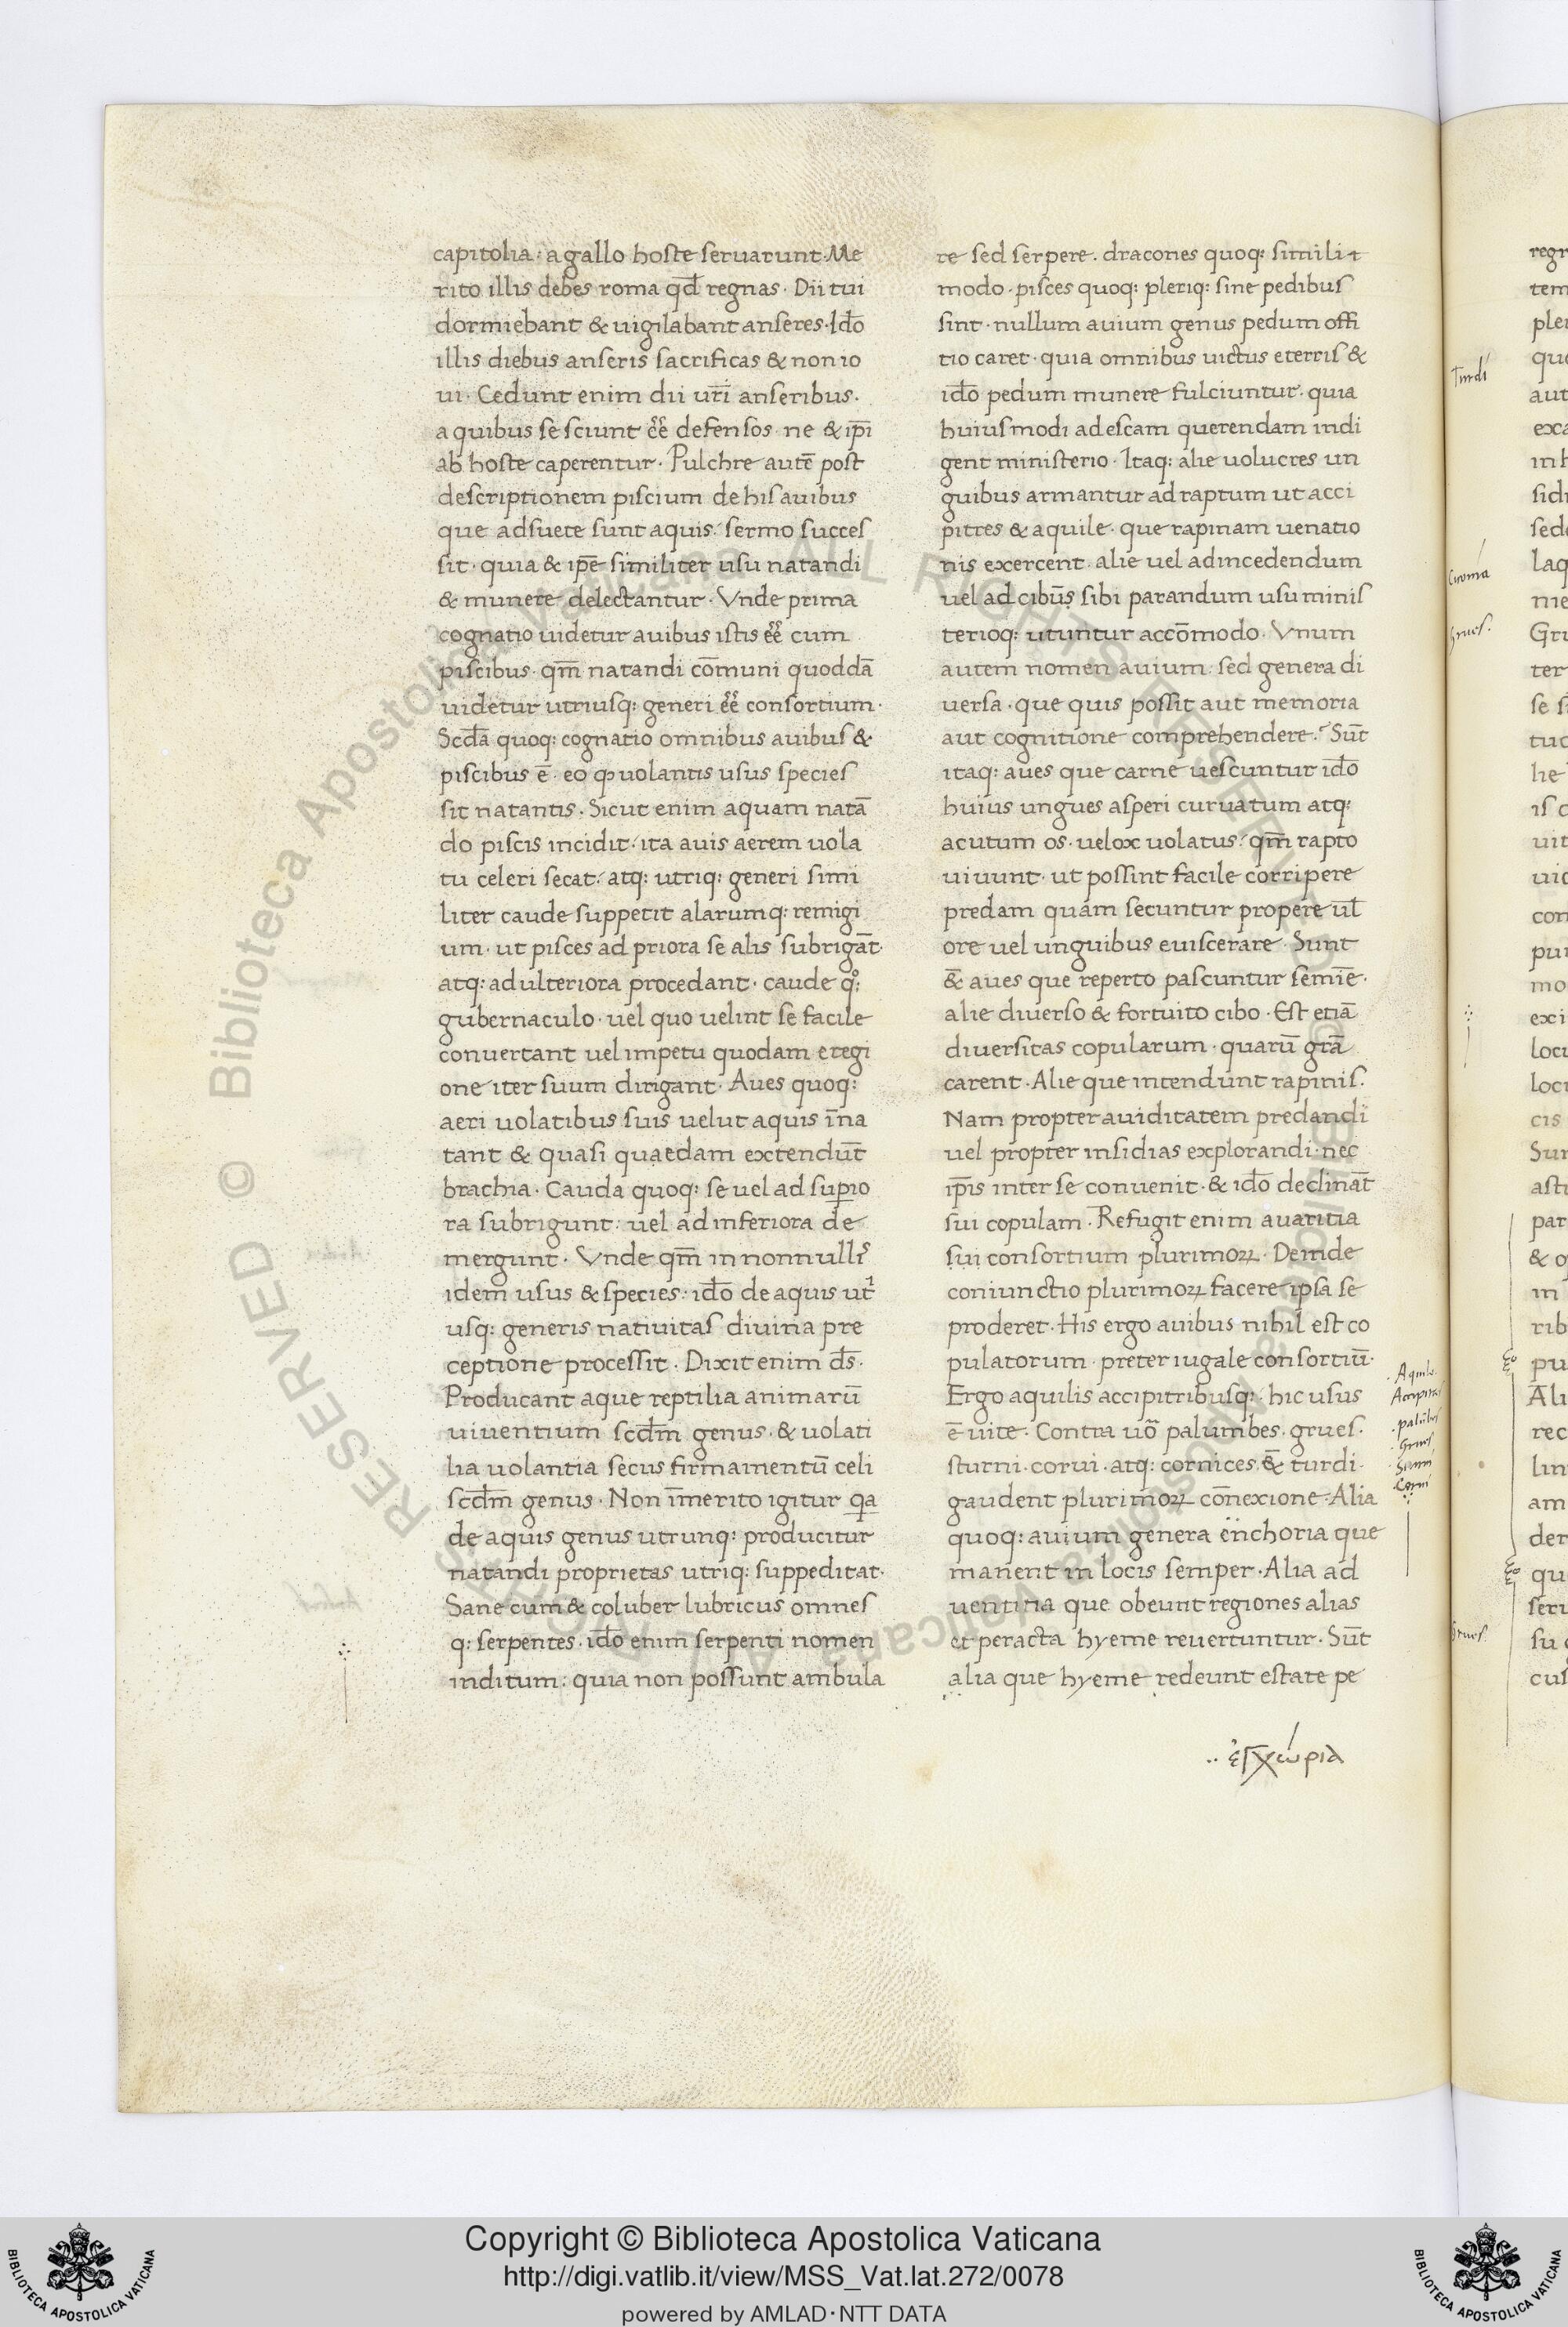 capitolia· a gallo hoste seruarunt· Me
rito illis debes roma qđ regnas· Dii tui
dormiebant & uigilabant anseres· Ido̅
illis diebus anseris sacrificas & non io
ui· Cedunt enim dii ur̅i anseribus·
a quibus se sciunt e̅e̅ defensos· ne & ip̅i
ab hoste caperentur· Pulchre aute̅ post
descriptionem piscium de his auibus
que adsuete sunt aquis: sermo succes
sit· quia & ip̅e similiter usu natandi
& munere delectantur· Vnde prima
cognatio uidetur auibus istis e̅e̅ cum
piscibus· qm̅ natandi co̅muni quodda̅
uidetur utriusq: generi e̅e̅ consortium·
Scd̅a quoq: cognatio omnibus auibus &
piscibus e̅· eo ꝙ uolantis usus species
sit natantis· Sicut enim aquam nata̅
do piscis incidit: ita auis aerem uola
tu celeri secat: atq: utriq: generi simi
liter caude suppetit alarumq: remigi
um· ut pisces ad priora se alis subriga̅t·
atq: ad ulteriora procedant· caude qͦ:
gubernaculo· uel quo uelint se facile
conuertant uel impetu quodam e regi
one iter suum dirigant· Aues quoq:
aeri uolatibus suis uelut aquis i̅na
tant & quasi quaedam extendu̅t
brachia· Cauda quoq: se uel ad sup̲io
ra subrigunt: uel ad inferiora de
mergunt· Vnde qm̅ in nonnullis
idem usus & species: ido̅ de aquis utⁱ
usq: generis natiuitas diuina pre
ceptione processit· Dixit enim ds̅·
Producant aque reptilia animaru̅
uiuentium scd̅m genus· & uolati
lia uolantia secus firmamentu̅ celi
scd̅m genus· Non i̅merito igitur q̲a
de aquis genus utrunq: producitur
natandi proprietas utriq: suppeditat·
Sane cum & coluber lubricus omnes
q: serpentes· ido̅ enim serpenti nomen
inditum: quia non possunt ambula
re sed serpere· dracones quoq: simili
modo· pisces quoq: pleriq: sine pedibus
sint· nullum auium genus pedum offi
tio caret· quia omnibus uictus e terris &
ido̅ pedum munere fulciuntur· quia
huiusmodi ad escam querendam indi
gent ministerio· Itaq: alie uolucres un
guibus armantur ad raptum ut acci
pitres & aquile· que rapinam uenatio
nis exercent· alie uel ad incedendum
uel ad cibu̅s sibi parandum usu minis
terioq: utuntur acco̅modo· Vnum
autem nomen auium: sed genera di
uersa· que quis possit aut memoria
aut cognitione comprehendere· Su̅t
itaq: aues que carne uescuntur ido̅
huius ungues asperi curuatum atq:
acutum os· uelox uolatus: qm̅ rapto
uiuunt· ut possint facile corripere
predam quam secuntur propere ul̅
ore uel unguibus euiscerare· Sunt
&̅ aues que reperto pascuntur semi̅e·
alie diuerso & fortuito cibo· Est etia̅
diuersitas copularum· quaru̅ gra̅
carent· Alie que intendunt rapinis·
Nam propter auiditatem predandi
uel propter insidias explorandi· nec
ip̅is inter se conuenit· & ido̅ declina̅t
sui copulam· Refugit enim auaritia
sui consortium plurimoꝝ· Deinde
coniunctio plurimoꝝ facere ipsa se
proderet· His ergo auibus nihil est co
pulatorum· preter iugale consortiu̅·
Ergo aquilis accipitribusq: hic usus
e̅ uite· Contra uo̅ palumbes· grues·
sturni· corui· atq: cornices &̅ turdi·
gaudent plurimoꝝ co̅nexione· Alia
quoq: auium genera enchoria que
manent in locis semper· Alia ad
uentina que obeunt regiones alias
et peracta hyeme reuertuntur· Su̅t
alia que hyeme redeunt estate pe
·· ἐγχώρια
palu̅bes
Grues
Turdi
Grues·
Grues·
Copyright © Biblioteca Apostolica Vaticana
http://digi.vatlib.it/view/MSS_Vat.lat.272/0078
powered by AMLAD·NTT DATA
BIBLIOTECA APOSTOLICA VATICANA
BIBLIOTECA APOSTOLICA VATICANA